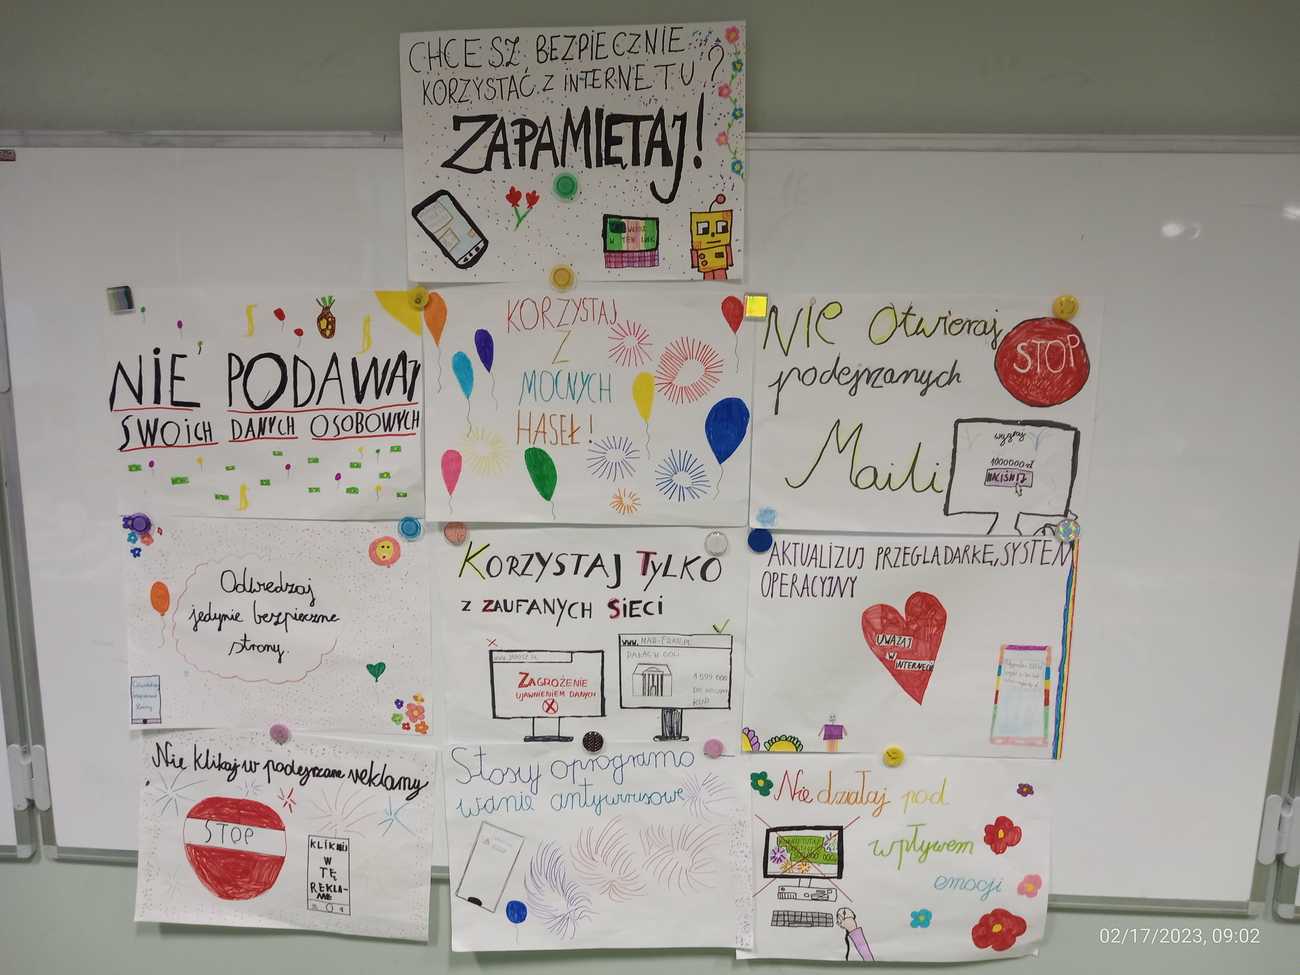 CHCESZ BEZPIECZNIE
KORZYSTAĆ Z INTERNETU?
ZAPAMIĘTAJ!
W TEN LINK
NIE PODAWAJ
SWOICH DANYCH OSOBOWYCH
KORZYSTAJ
Z
MOCNYCH
HASEŁ!
NIE Otwieraj
podejrzanych
Maili
STOP
wygraj
1000000 zł
NACIŚNIJ
Odwiedzaj
jedynie bezpieczne
strony.
KORZYSTAJ TYLKO
Z ZAUFANYCH SIECI
ZAGROŻENIE
UJAWNIENIEM DANYCH
AKTUALIZUJ PRZEGLADARKĘ, SYSTEM
OPERACYJNY
UWAŻAJ
W
INTERNECIE
Nie klikaj w podejrzane reklamy
STOP
KLIKNIJ
W
TĘ
REKLA-
MĘ
Stosuj oprogramo
wanie antywirusowe
Nie działaj pod
wpływem
emocji
02/17/2023, 09:02